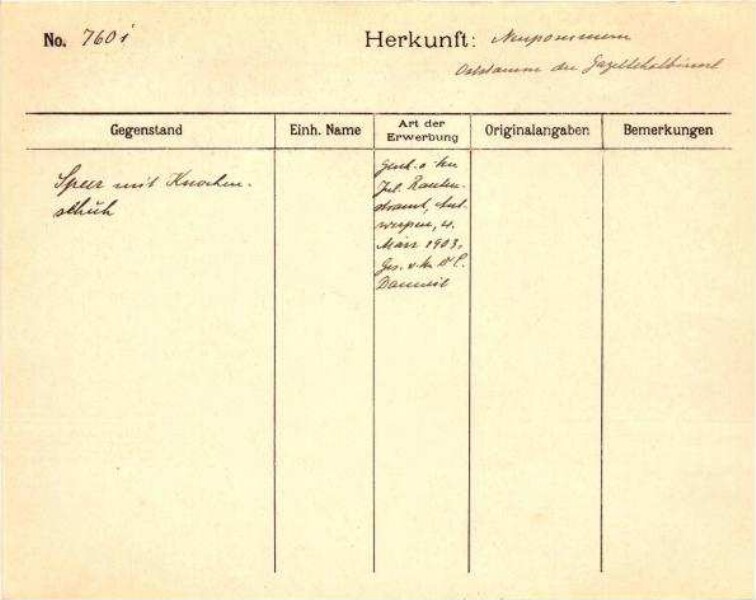 No. 7601
Herkunft: Neupommern
Oststamm der Gazellehalbinsel
Gegenstand
Einh. Name
Art der Erwerbung
Originalangaben
Bemerkungen
Speer mit Knochen-
schuh
Gesch. v. Hn
Jul. Rauten-
strauch, Ant-
werpen, 4.
März 1903.
Ges. v. Hn Dr C.